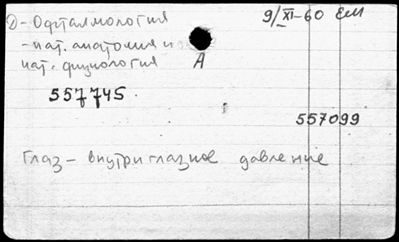 Д-Офталмология 9/XI-60 ЕМ
-пат. анатомия и
пат. физиология А
557745.
557099
Глаз - внутриглазное давление